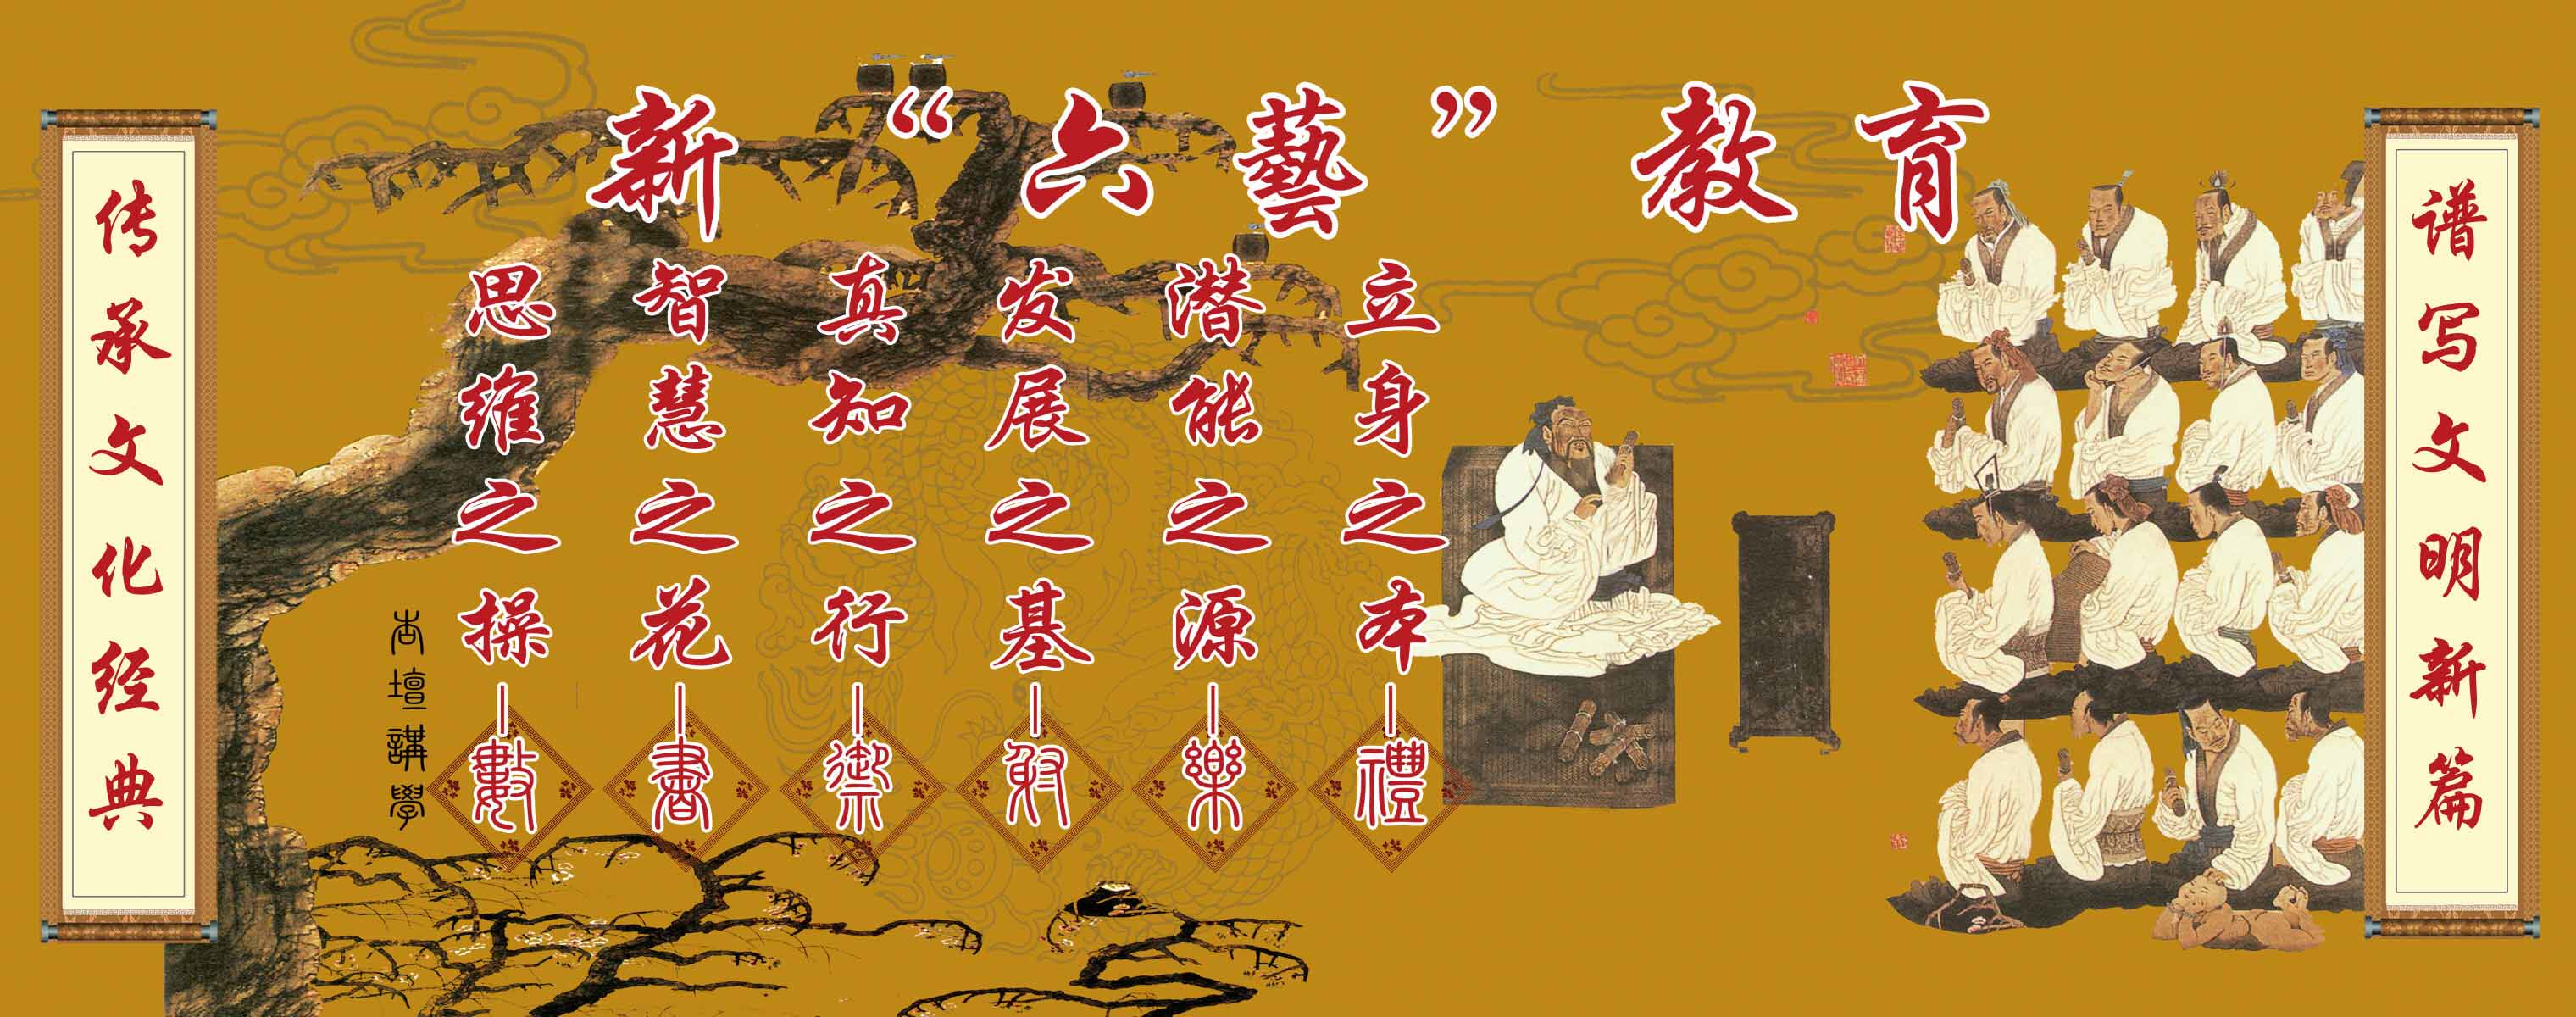 新“六藝”教育
立身之本—禮
潜能之源—樂
发展之基—射
真知之行—御
智慧之花—書
思维之操—數
杏壇講學
传承文化经典
谱写文明新篇